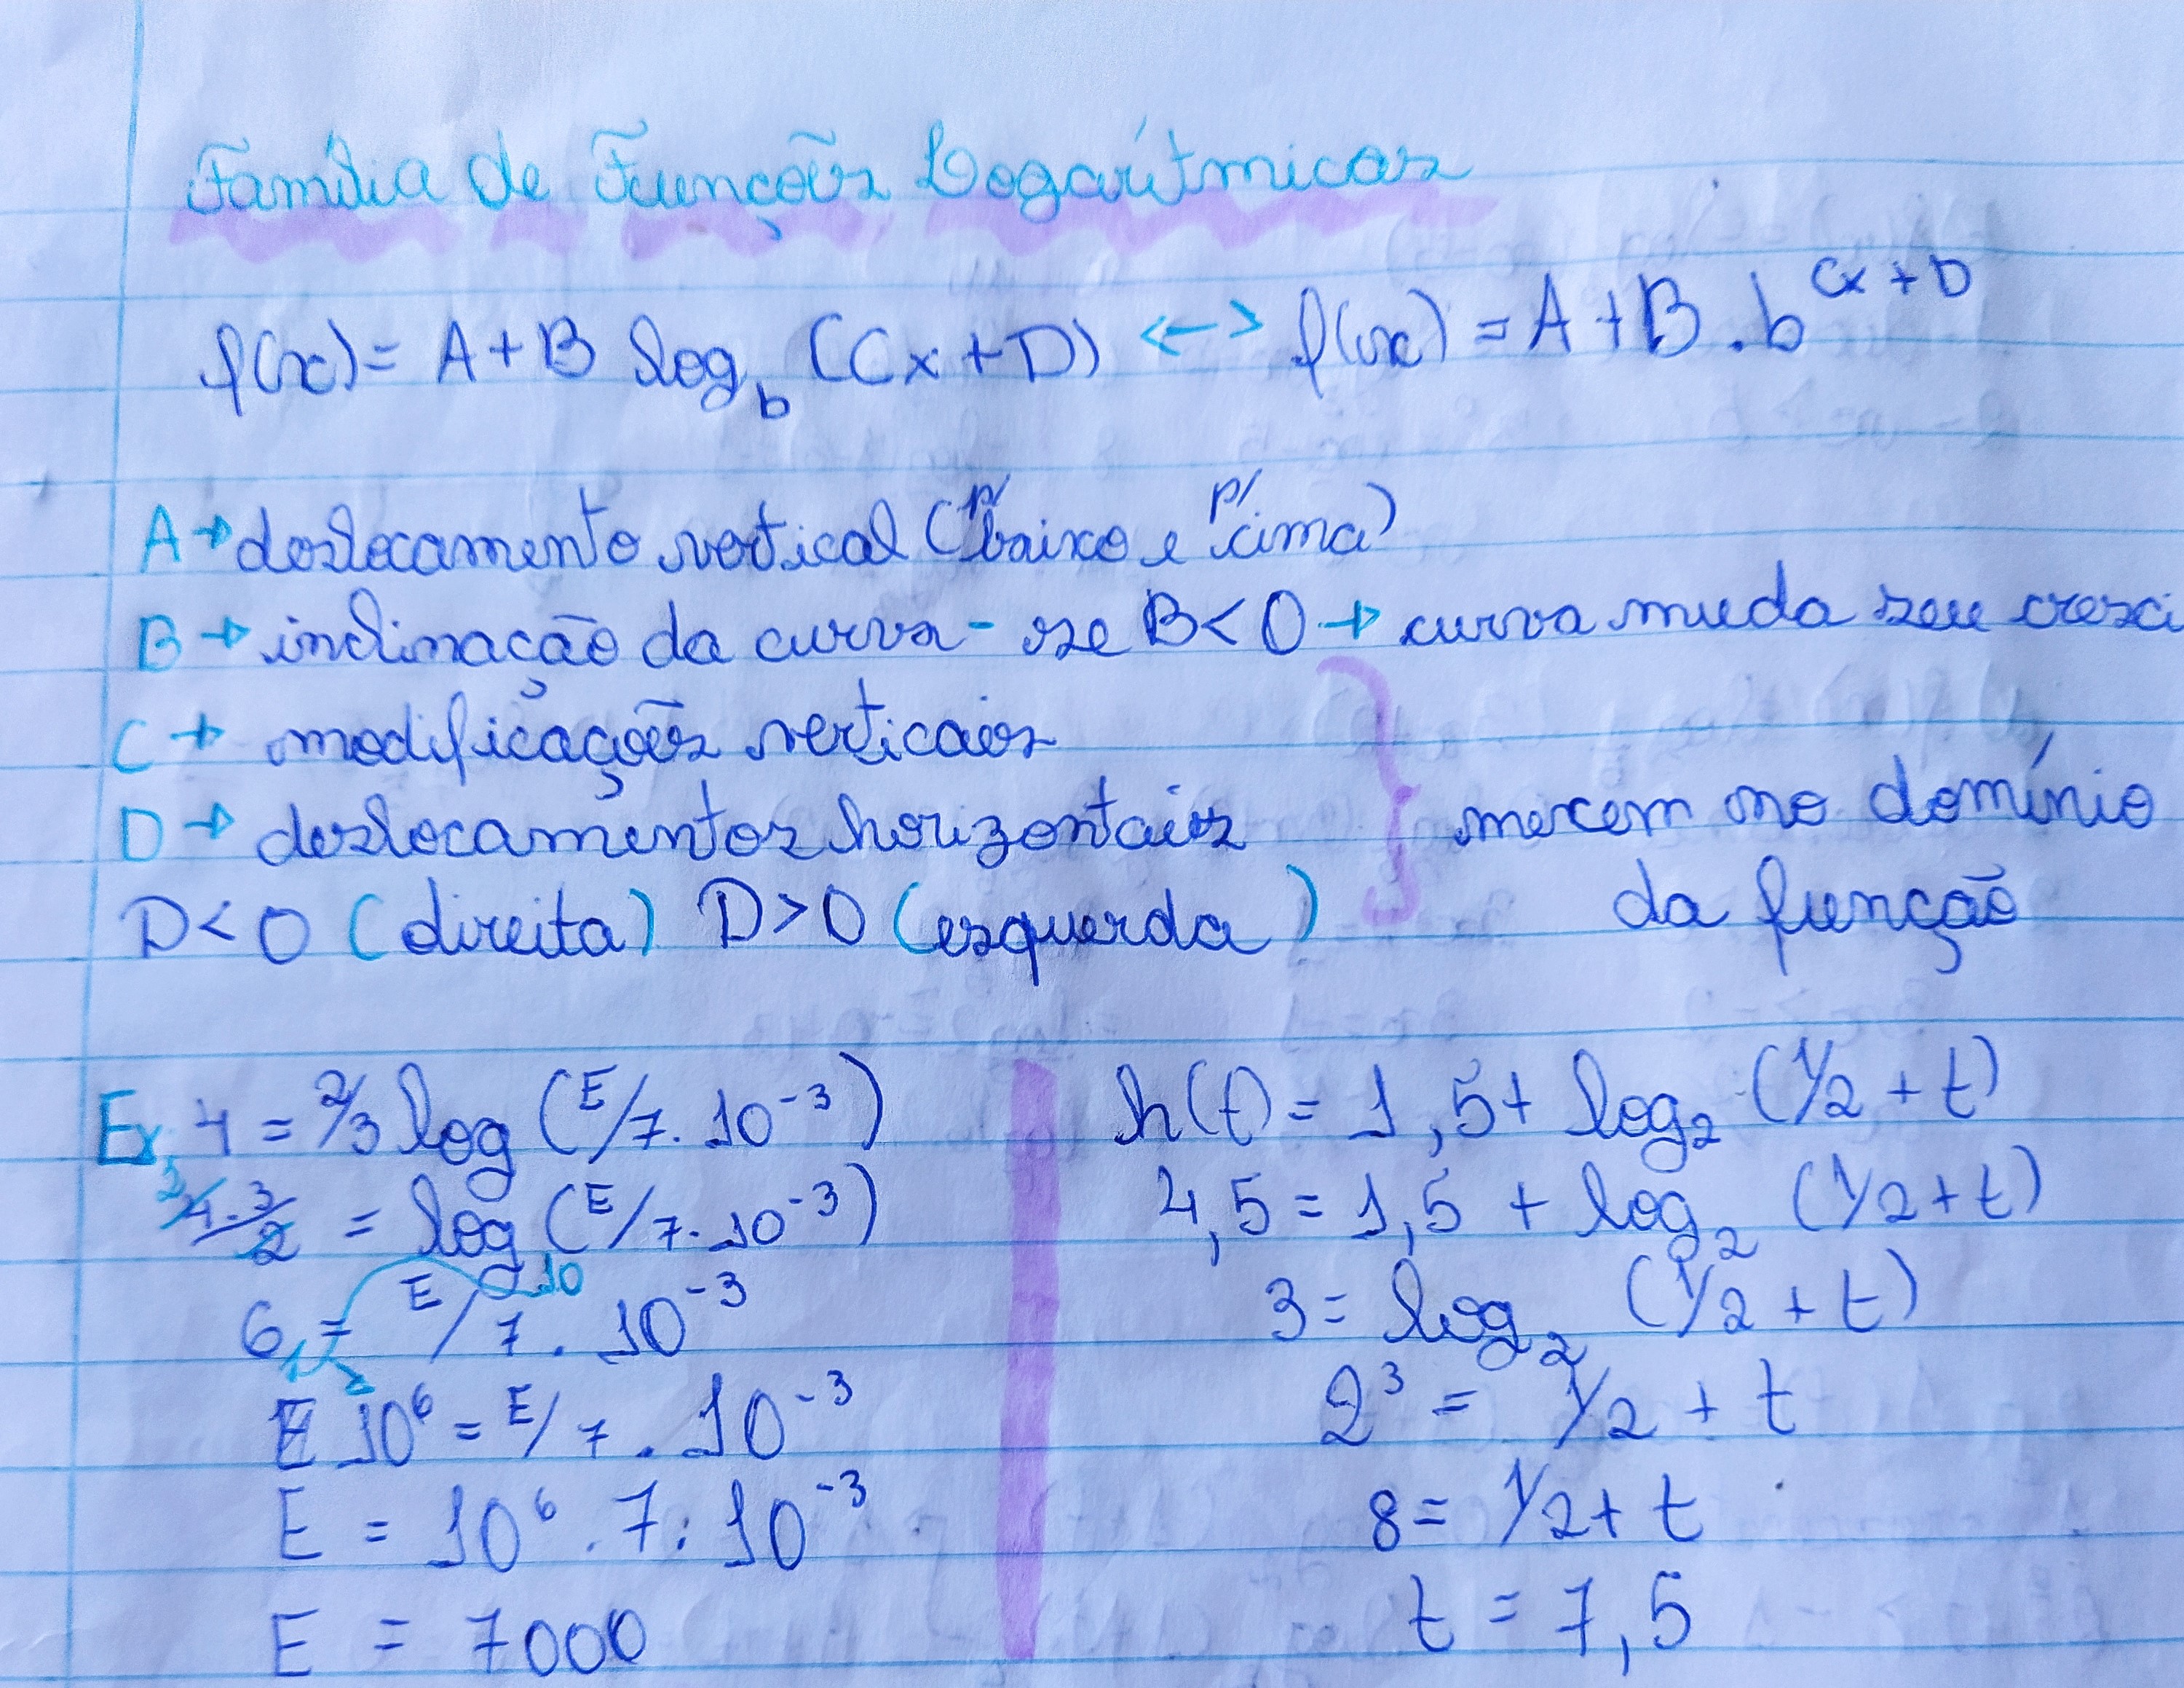 Família de Funções Logarítmicas
f(x) = A + B log_b (Cx + D) <-> f(x) = A + B . b^(Cx + D)
A → deslocamento vertical (p/ baixo e p/ cima)
B → inclinação da curva - se B < 0 → curva muda seu cresci
C → modificações verticais
D → deslocamentos horizontais
D < 0 (direita) D > 0 (esquerda)
mexem no domínio
da função
Ex, 4 = 2/3 log (E/7 . 10^-3)
4 . 3/2 = log_10 (E/7 . 10^-3)
6 = E/7 . 10^-3
10^6 = E/7 . 10^-3
E = 10^6 . 7 . 10^-3
E = 7000
h(t) = 1,5 + log_2 (1/2 + t)
4,5 = 1,5 + log_2 (1/2 + t)
3 = log_2 (1/2 + t)
2^3 = 1/2 + t
8 = 1/2 + t
t = 7,5